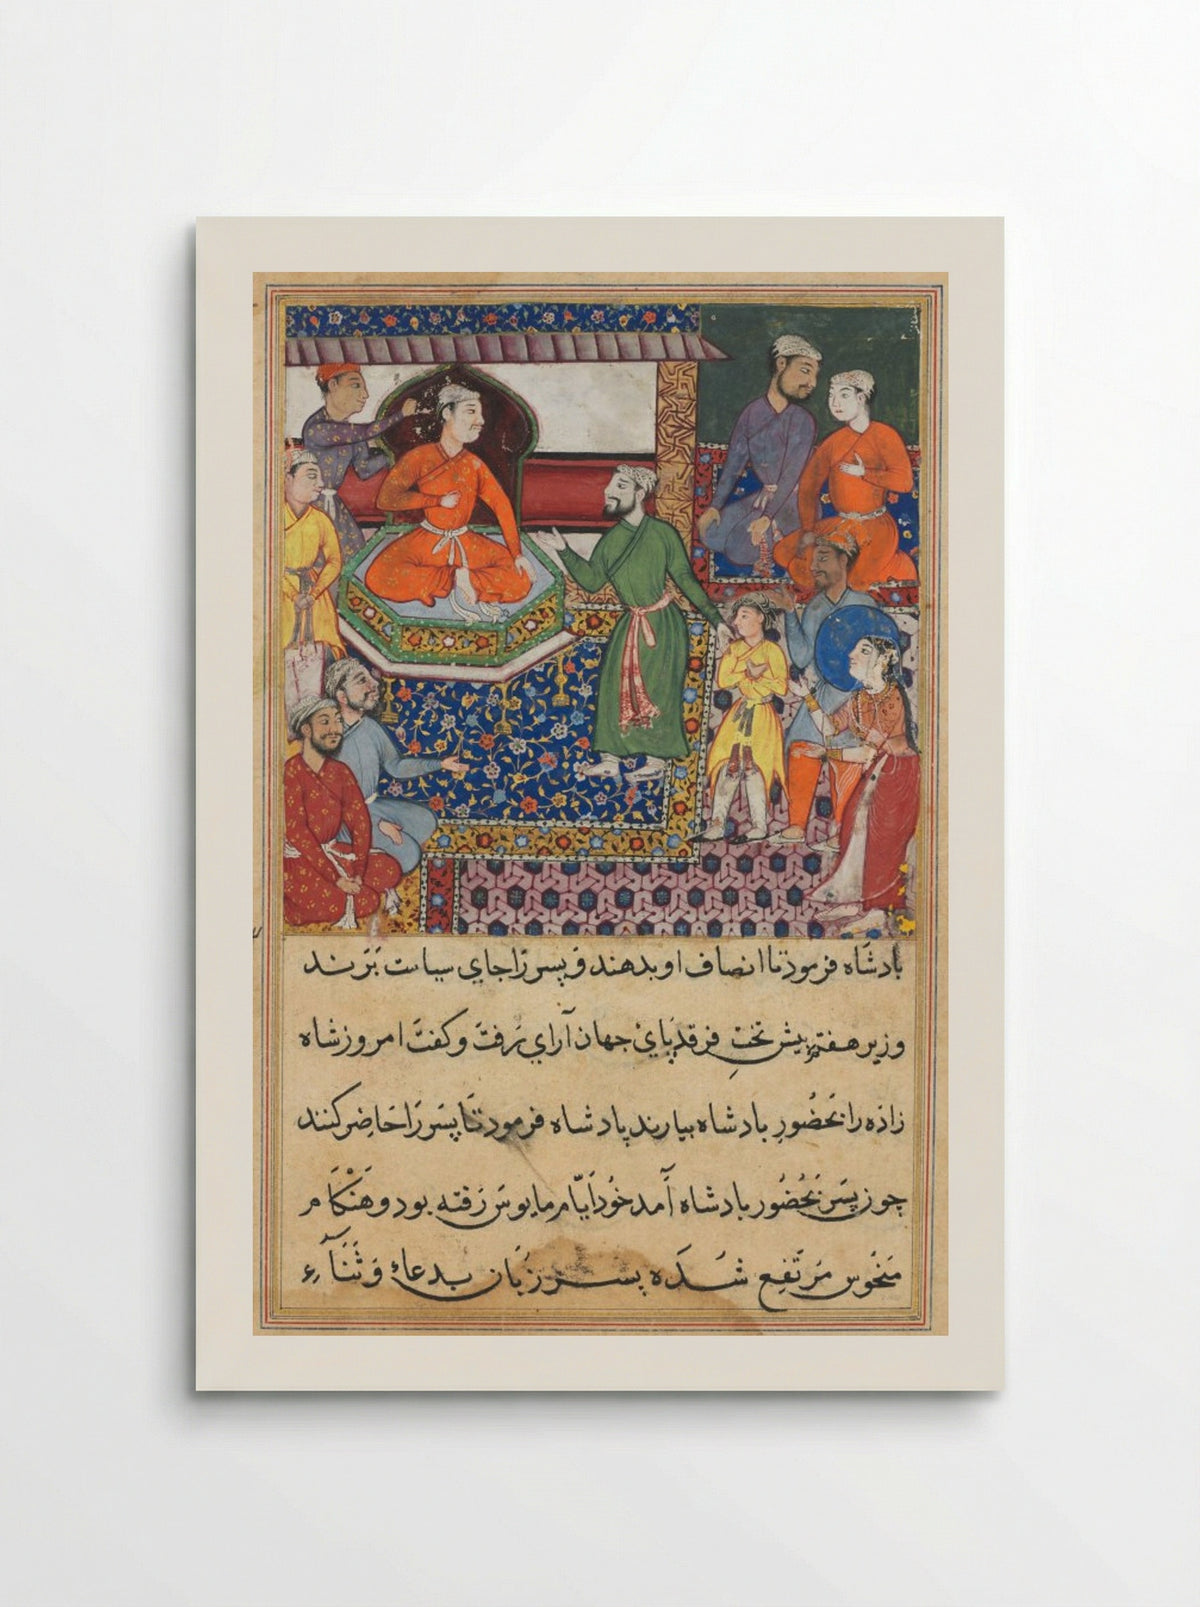 بادشاه فرمود تا انصاف او بدهند و پسر را جای سیاست برند
وزیر هفتم پیش تخت فرقد پای جهان آرای رفت و گفت امروز شاه
زاده را بحضور بادشاه بیارند بادشاه فرمود تا پسر را حاضر کنند
چون پسر بحضور بادشاه آمد خود ایام مایوس رفته بود و هنگام
منحوس مرتفع شده پسر زبان بدعاء و ثناء